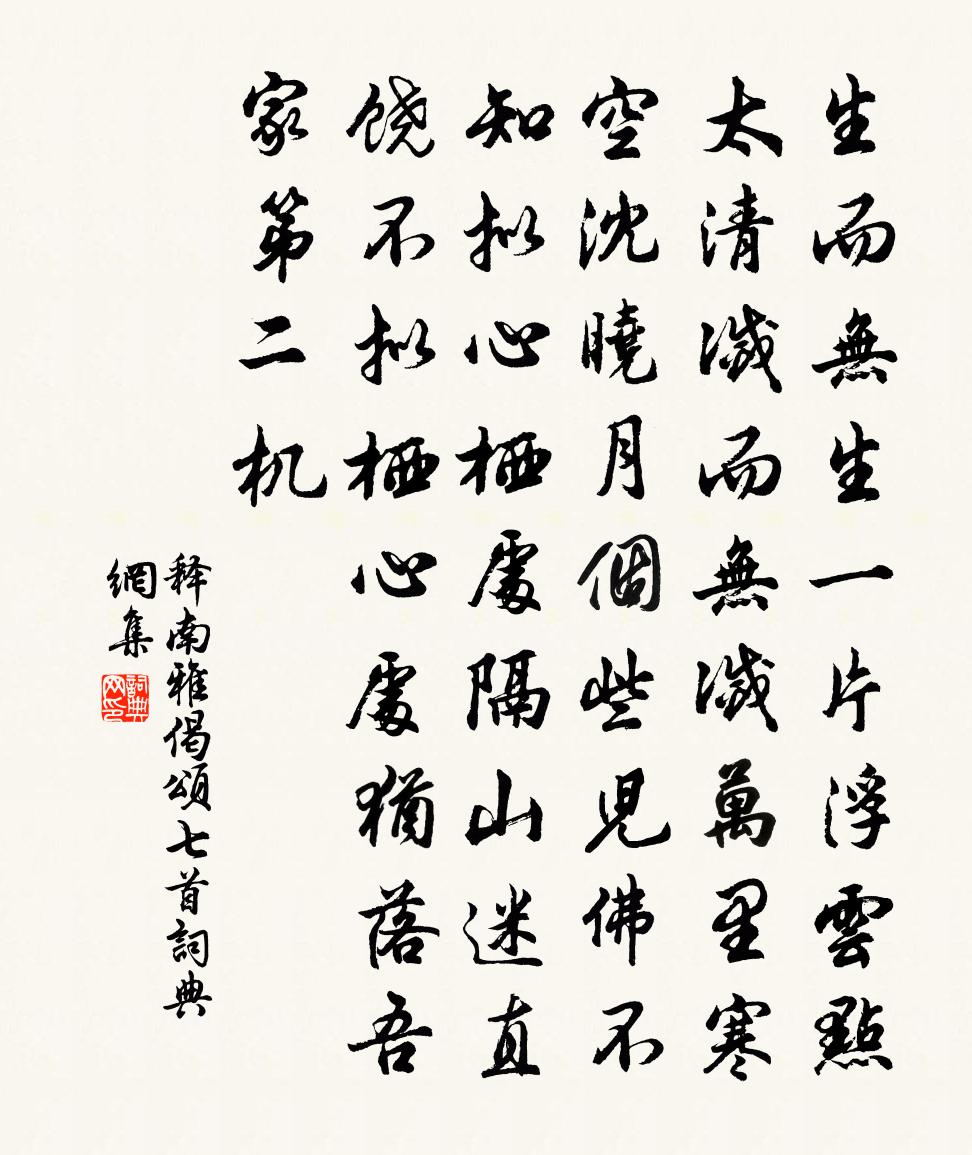 生而無生一片浮雲點
太清滅而無滅萬里寒
空沈曉月個些見佛不
知拟心栖處隔山迷直
饶不拟栖心處猶落吾
家第二机
释南雅偈頌七首詞典
網集
詞典
网印